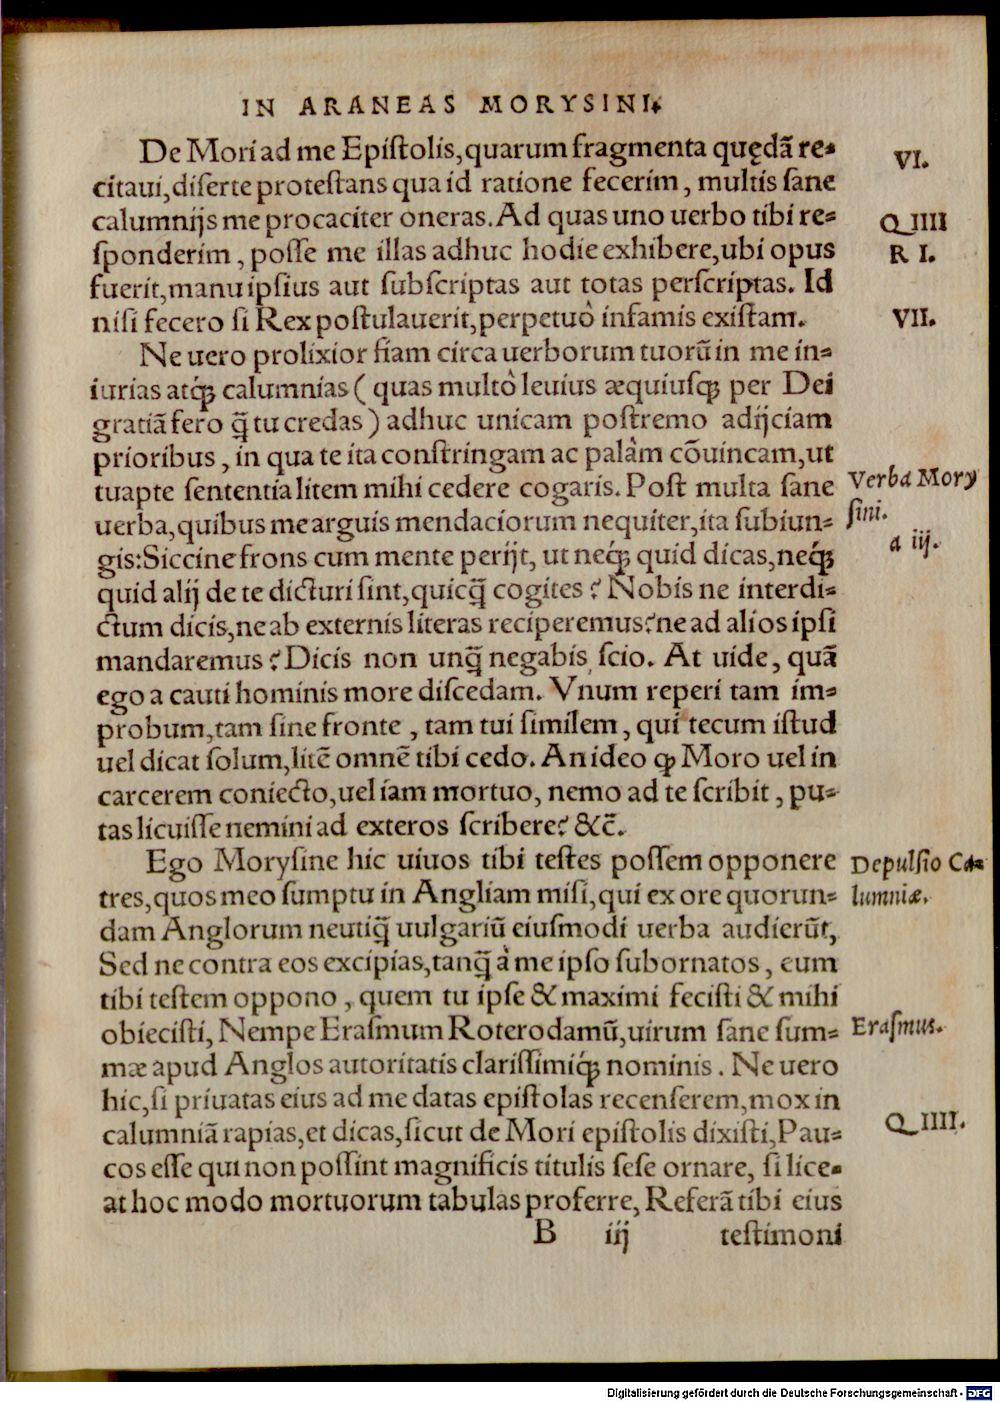 IN ARANEAS MORYSINI.
De Mori ad me Epiſtolis, quarum fragmenta quędā re-
citaui, diſerte proteſtans qua id ratione fecerim, multis ſane
calumnijs me procaciter oneras. Ad quas uno uerbo tibi re-
ſponderim, poſſe me illas adhuc hodie exhibere, ubi opus
fuerit, manu ipſius aut ſubſcriptas aut totas perſcriptas. Id
niſi fecero ſi Rex poſtulauerit, perpetuò infamis exiſtam.
VI.
Q IIII
R I.
VII.
Ne uero prolixior fiam circa uerborum tuorū in me in-
iurias atq́; calumnias ( quas multò leuius æquiuſq́; per Dei
gratiā fero q̄ tu credas ) adhuc unicam poſtremo adijciam
prioribus, in qua te ita conſtringam ac palàm cōuincam, ut
tuapte ſententia litem mihi cedere cogaris. Poſt multa ſane
uerba, quibus me arguis mendaciorum nequiter, ita ſubiun-
gis: Siccine frons cum mente perijt, ut neq́; quid dicas, neq́;
quid alij de te dicturi ſint, quicq̄ cogites? Nobis ne interdi-
ctum dicis, ne ab externis literas reciperemus? ne ad alios ipſi
mandaremus? Dicis non unq̄ negabis ſcio. At uide, quā
ego a cauti hominis more diſcedam. Vnum reperi tam im-
probum, tam ſine fronte, tam tui ſimilem, qui tecum iſtud
uel dicat ſolum, litē omnē tibi cedo. An ideo ꝙ Moro uel in
carcerem coniecto, uel iam mortuo, nemo ad te ſcribit, pu-
tas licuiſſe nemini ad exteros ſcribere? &c̄.
Verba Mory
ſini.
a iij.
Ego Moryſine hic uiuos tibi teſtes poſſem opponere
tres, quos meo ſumptu in Angliam miſi, qui ex ore quorun-
dam Anglorum neutiq̄ uulgariū eiuſmodi uerba audierūt,
Sed ne contra eos excipias, tanq̄ à me ipſo ſubornatos, eum
tibi teſtem oppono, quem tu ipſe & maximi feciſti & mihi
obieciſti, Nempe Eraſmum Roterodamū, uirum ſane ſum-
mæ apud Anglos autoritatis clariſſimiq́; nominis. Ne uero
hic, ſi priuatas eius ad me datas epiſtolas recenſerem, mox in
calumniā rapias, et dicas, ſicut de Mori epiſtolis dixiſti, Pau-
cos eſſe qui non poſſint magnificis titulis ſeſe ornare, ſi lice-
at hoc modo mortuorum tabulas proferre, Referā tibi eius
Depulſio Ca-
lumniæ.
Eraſmus.
Q IIII.
B iij teſtimoni
Digitalisierung gefördert durch die Deutsche Forschungsgemeinschaft - DFG